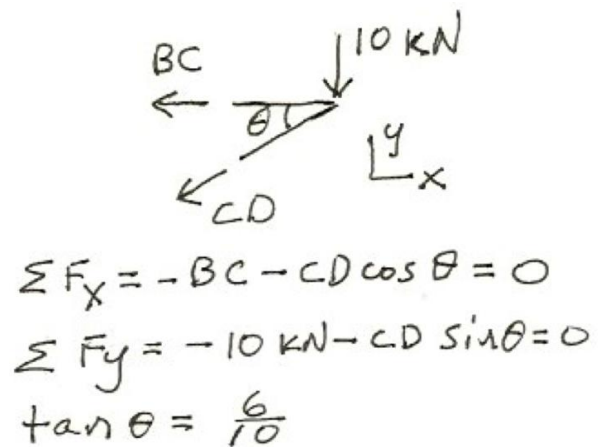 10 KN
BC
θ
y
x
CD
Σ Fx = - BC - CD cos θ = 0
Σ Fy = - 10 KN - CD sin θ = 0
tan θ = 6/10